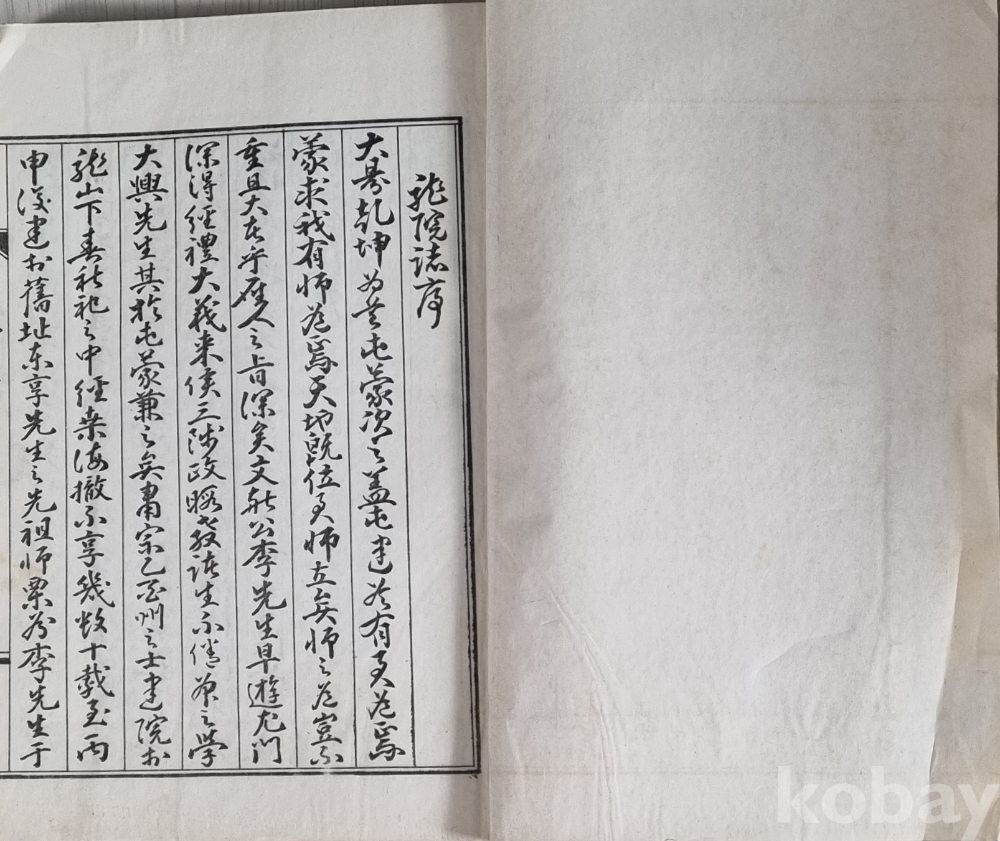 龍院誌序
大易乾坤爲首屯蒙次之盖屯建侯有君道焉
蒙求我有師道焉天地旣位君師立矣師之道豈不
重且大在乎聖人之旨深矣文敬公李先生早遊尤門
深得經禮大義來侯三陟政暇敎諸生不倦第之學
大興先生其於屯蒙兼之矣肅宗乙酉州之士建院於
龍山下春秋祀之中經桑海撤不享幾數十載至丙
申復建於舊址東享先生之先祖師栗谷李先生于
kobay